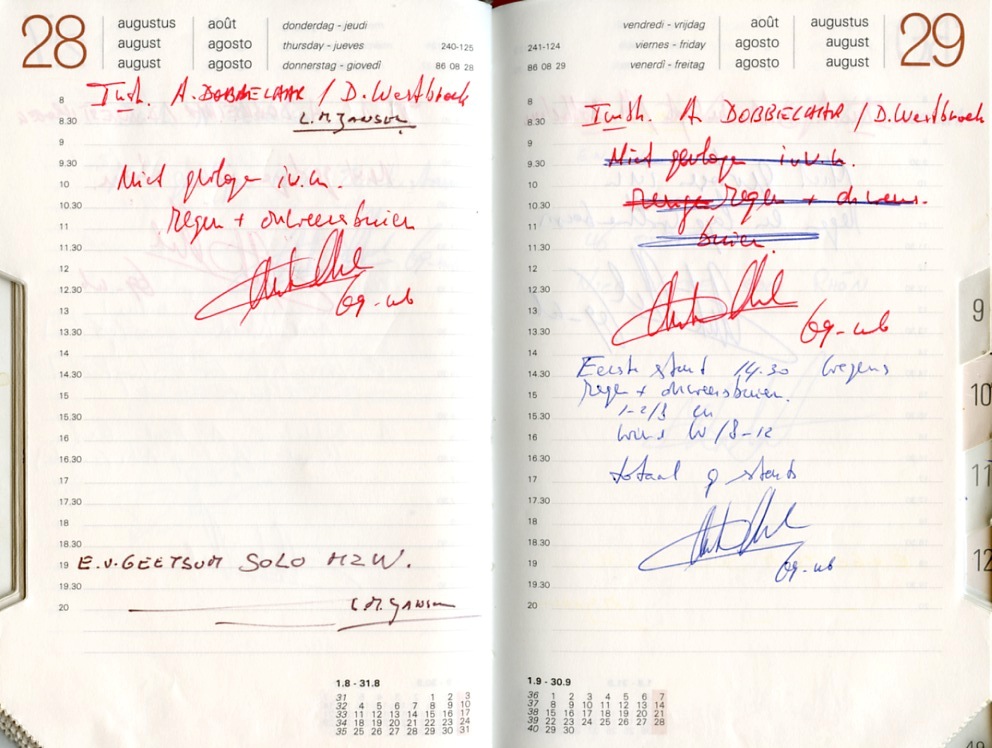 28
augustus août donderdag - jeudi
august agosto thursday - jueves 240-125
august agosto donnerstag - giovedì 86 08 28
8 Instr. A. DOBBELAAR / D. Westbroek
8.30 L.M. JANSEN
9
9.30 Niet gevlogen i.v.m.
10
10.30 regen + onweersbuien
11
11.30
12
12.30 69-wb
13
13.30
14
14.30
15
15.30
16
16.30
17
17.30
18
18.30
19 E.v. GEETSUM SOLO M2W.
19.30
20 L.M. JANSEN
1.8 - 31.8
31 1 2 3
32 4 5 6 7 8 9 10
33 11 12 13 14 15 16 17
34 18 19 20 21 22 23 24
35 25 26 27 28 29 30 31
vendredi - vrijdag août augustus 29
241-124 viernes - friday agosto august
86 08 29 venerdì - freitag agosto august
8
8.30 Instr. A DOBBELAAR / D. Westbroek
9
9.30 Niet gevlogen i.v.m.
10
10.30 regen + onweers.
11
11.30 buien.
12
12.30
13
13.30 69-wb
14
14.30 Eerste start 14.30 wegens
15 regen + onweersbuien.
15.30 1-2/8 cu
16 wind W/8-12
16.30
17 totaal 9 starts
17.30
18
18.30
19 69-wb
19.30
20
1.9 - 30.9
36 1 2 3 4 5 6 7
37 8 9 10 11 12 13 14
38 15 16 17 18 19 20 21
39 22 23 24 25 26 27 28
40 29 30
9
10
11
12